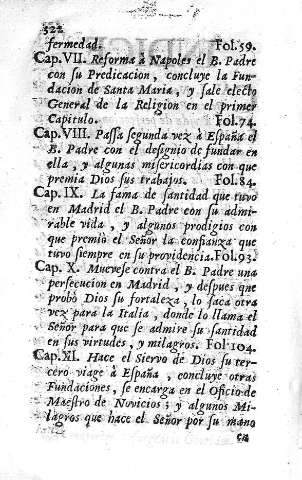 522
fermedad. Fol.59.
Cap.VII. Reforma à Napoles el B. Padre
con su Predicacion, concluye la Fun-
dacion de Santa Maria, y sale electo
General de la Religion en el primer
Capitulo. Fol.74.
Cap.VIII. Passa segunda vez à España el
B. Padre con el designio de fundar en
ella, y algunas misericordias con que
premia Dios sus trabajos. Fol.84.
Cap.IX. La fama de santidad que tuvo
en Madrid el B. Padre con su admi-
rable vida, y algunos prodigios con
que premiò el Señor la confianza que
tuvo siempre en su providencia. Fol.93.
Cap. X. Muevese contra el B. Padre una
persecucion en Madrid, y despues que
probò Dios su fortaleza, lo saca otra
vez para la Italia, donde lo llama el
Señor para que se admire su santidad
en sus virtudes, y milagros. Fol 104.
Cap.XI. Hace el Siervo de Dios su ter-
cero viage à España, concluye otras
Fundaciones, se encarga en el Oficio de
Maestro de Novicios; y algunos Mi-
lagros que hace el Señor por su mano